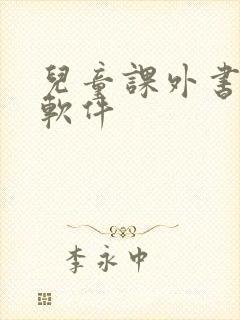 兒童課外書
軟件
李永中